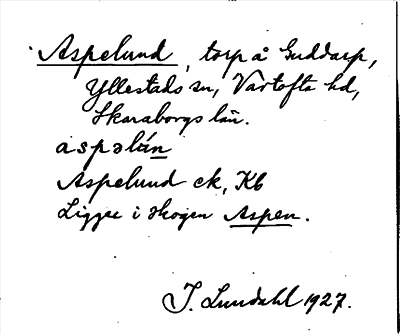 Aspelund, torp å Guddarp,
Yllestads sn, Vartofta hd,
Skaraborgs län.
aspəlán
Aspelund ek, Kb
Ligger i skogen Aspen.
I. Lundahl 1927.